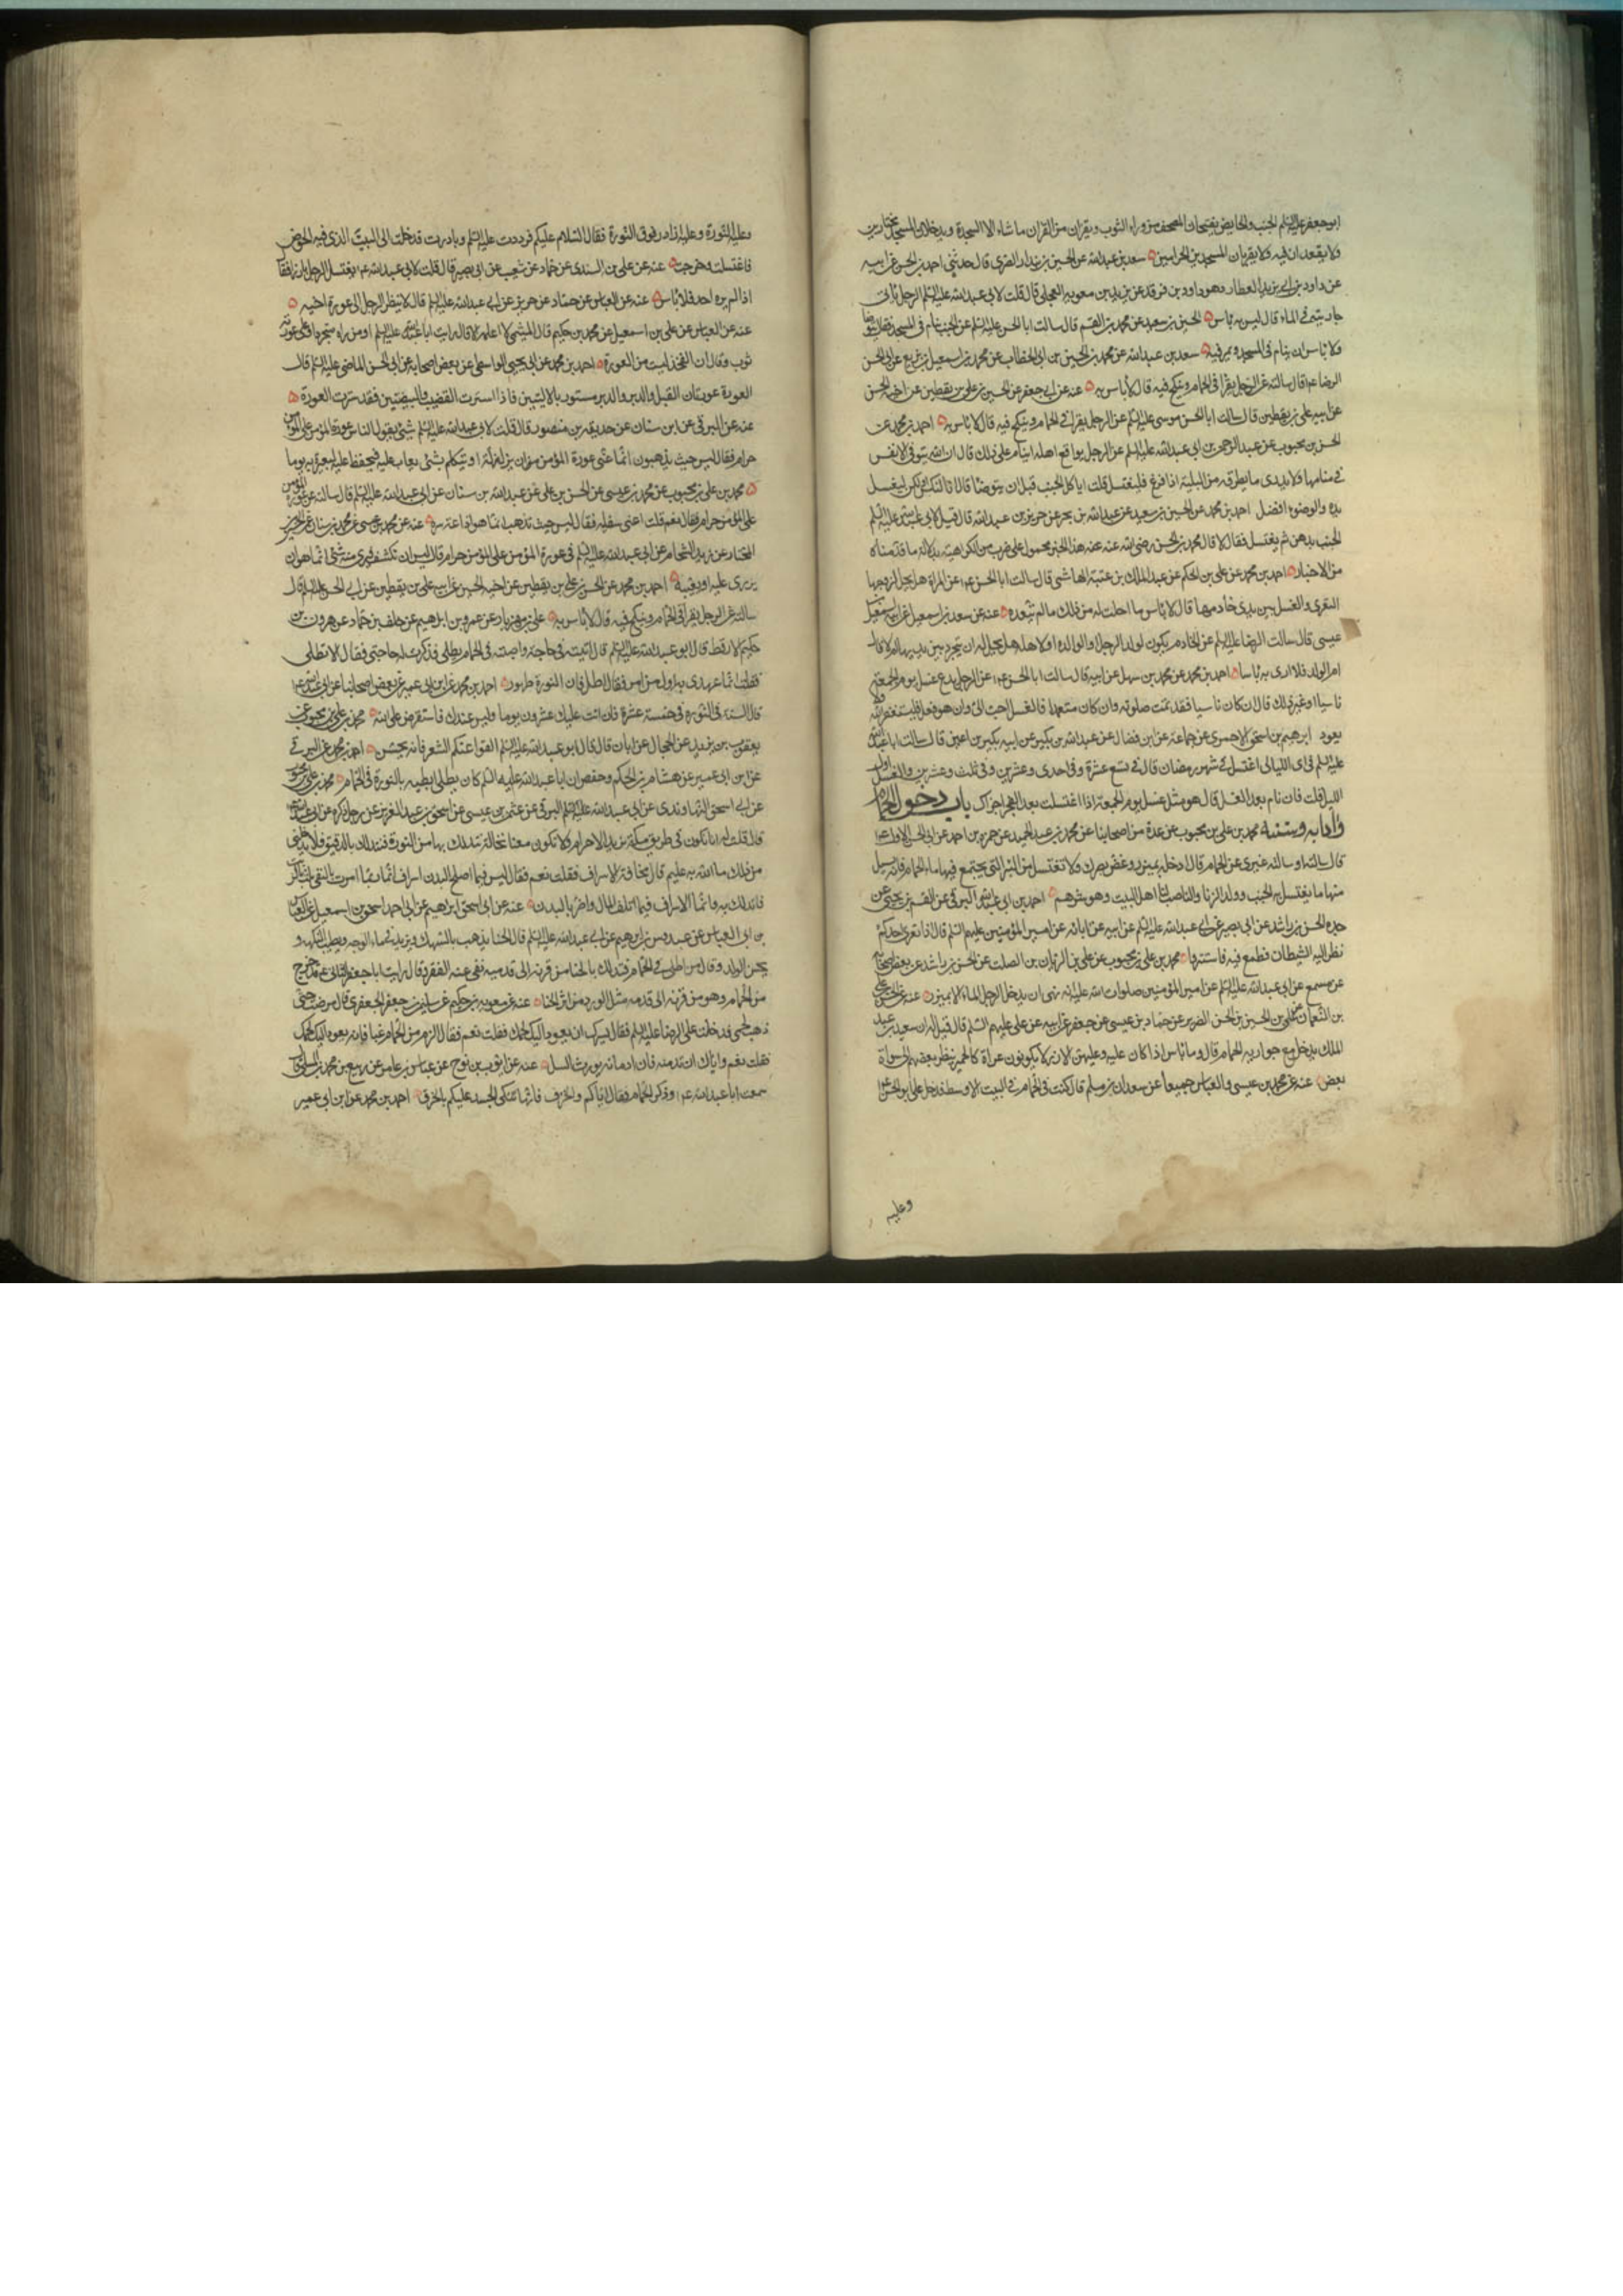 ابوجعفر عليه السلم الجنب والحايض يفتحان المصحف من وراء الثوب ويقران من القران ما شاء الا السجدة ويدخلان المسجد مختارين
ولا يقعدان فيه ولا يقربان المسجدين الحرامين سعد بن عبدالله عن الحسين بن بندار الصرمى قال حدثنى احمد بن الحسن عن ابيه
عن داود بن ابى يزيد العطار وهو داود بن فرقد عن بريد بن معوية العجلى قال قلت لابى عبدالله عليه السلم الرجل ياتى
جاريته فى الماء قال ليس به باس الحسين بن سعيد عن محمد بن القسم قال سالت ابا الحسن عليه السلم عن الجنب ينام فى المسجد فقال يتوضا
ولا باس ان ينام فى المسجد ويمر فيه سعد بن عبدالله عن محمد بن الحسين بن ابى الخطاب عن محمد بن اسمعيل بن بزيع عن ابى الحسن
الرضا ع قال سالته عن الرجل يقرا فى الحمام وينكح فيه قال لا باس به عنه عن ابى جعفر عن الحسين بن على بن يقطين عن اخيه الحسن
عن ابيه على بن يقطين قال سالت ابا الحسن موسى عليه السلم عن الرجل يقرا فى الحمام وينكح فيه قال لا باس به احمد بن محمد عن
الحسن بن محبوب عن عبد الرحمن بن ابى عبدالله عليه السلم عن الرجل يواقع اهله اينام على ذلك قال ان الله يتوفى الانفس
فى منامها فلا يدرى ما يطرقه من البلية اذا فرغ فليغتسل قلت اياكل الجنب قبل ان يتوضا قال انا لنكسل ولكن ليغسل
يده والوضوء افضل احمد بن محمد عن الحسين بن سعيد عن عبدالله بن بحر عن حريز بن عبدالله قال قيل لابى عبدالله عليه السلم
الجنب يدهن ثم يغتسل فقال لا قال محمد بن الحسن رضى الله عنه هذا الخبر محمول على ضرب من الكراهية بدلالة ما قدمناه
من الاخبار احمد بن محمد عن على بن الحكم عن عبد الملك بن عتبة الهاشمى قال سالت ابا الحسن ع عن المراة هل يحل لزوجها
التعرى والغسل بين يدى خادمها قال لا باس ما احلت له من ذلك ما لم يتعده عنه عن سعد بن اسمعيل عن ابيه اسمعيل
عيسى قال سالت الرضا عليه السلم عن الخادم يكون لولد الرجل او لوالده او لاهله هل يحل له ان يتجرد بين يديها ام لا قال
ام الولد فلا ارى به باسا احمد بن محمد عن محمد بن سهل عن ابيه قال سالت ابا الحسن ع عن الرجل يدع غسل يوم الجمعة
ناسيا او غير ذلك قال ان كان ناسيا فقد تمت صلوته وان كان متعمدا فالغسل احب الى وان هو فعل فليستغفر الله ولا
يعود ابرهيم بن اسحق الاحمرى عن جماعة عن ابن فضال عن عبدالله بن بكير عن ابيه بكير بن اعين قال سالت ابا عبدالله
عليه السلم فى اى الليالى اغتسل فى شهر رمضان قال فى تسع عشرة وفى احدى وعشرين وفى ثلث وعشرين والغسل اول
الليل قلت فان نام بعد الغسل قال هو مثل غسل يوم الجمعة اذا اغتسلت بعد الفجر اجزاك باب دخول الحمام
وآدابه وسننه محمد بن على بن محبوب عن عدة من اصحابنا عن محمد بن عبد الحميد عن حمزة بن احمد عن ابى الحسن الاول ع
قال سالته او ساله غيرى عن الحمام قال ادخله بميزر وغض بصرك ولا تغتسل من البئر التى يجتمع فيها ماء الحمام فانه يسيل
منها ما يغتسل به الجنب وولد الزنا والناصب لنا اهل البيت وهو شرهم احمد بن ابى عبدالله البرقى عن القسم بن يحيى عن
جده الحسن بن راشد عن ابى بصير عن ابى عبدالله عليه السلم عن ابيه عن ابائه عن امير المؤمنين عليهم السلم قال اذا تعرى احدكم
نظر اليه الشيطان فطمع فيه فاستتروا محمد بن على بن محبوب عن على بن الريان بن الصلت عن الحسن بن راشد عن بعض اصحابه
عن مسمع عن ابى عبدالله عليه السلم عن امير المؤمنين صلوات الله عليه انه نهى ان يدخل الرجل الماء الا بميزر عنه عن
بن الحسين بن الحسن الضرير عن حماد بن عيسى عن جعفر عن ابيه عن على عليهم السلم قال قيل له ان سعيد بن عبد
الملك يدخل مع جواريه الحمام قال وما باس اذا كان عليه وعليهن الازر لا يكونون عراة كالحمير ينظر بعضهم الى سواة
بعض عنه عن محمد بن عيسى والعباس جميعا عن سعدان بن مسلم قال كنت فى الحمام فى البيت الاوسط فدخل على ابو الحسن ع
وعليه
وعليه النورة وعليه ازار فوق النورة فقال السلام عليكم فرددت عليه السلم وبادرت فدخلت الى البيت الذى فيه الحوض
فاغتسلت وخرجت عنه عن على بن السندى عن حماد عن شعيب عن ابى بصير قال قلت لابى عبدالله ع يغتسل الرجل بارزا فقال
اذا لم يره احد فلا باس عنه عن العباس عن حماد عن حريز عن ابى عبدالله عليه السلم قال لا ينظر الرجل الى عورة اخيه
عنه عن العباس عن على بن اسمعيل عن محمد بن حكيم قال الميثمى لا اعلمه الا قال رايت ابا عبدالله عليه السلم او من راه متجردا وعلى عورته
ثوب وقال ان الفخذ ليست من العورة احمد بن محمد عن ابى يحيى الواسطى عن بعض اصحابه عن ابى الحسن الماضى عليه السلم قال
العورة عورتان القبل والدبر والدبر مستور بالاليتين فاذا سترت القضيب والبيضتين فقد سترت العورة
عنه عن البرقى عن ابن سنان عن حذيفة بن منصور قال قلت لابى عبدالله عليه السلم شئ يقول الناس عورة المؤمن على المؤمن
حرام فقال ليس حيث يذهبون انما عنى عورة المؤمن ان يزل زلة او يتكلم بشئ يعاب عليه فيحفظ عليه ليعيره به يوما
محمد بن على بن محبوب عن محمد بن عيسى عن الحسن بن على عن عبدالله بن سنان عن ابى عبدالله عليه السلم قال سالته عن عورة المؤمن
على المؤمن حرام فقال نعم قلت اعنى سفليه فقال ليس حيث تذهب انما هو اذاعة سره عنه عن محمد بن عيسى عن محمد بن سنان عن الحسين
المختار عن زيد الشحام عن ابى عبدالله عليه السلم فى عورة المؤمن على المؤمن حرام قال ليس ان تكشف فيرى منه شئ انما هو ان
يزرى عليه او يعيبه احمد بن محمد عن الحسن بن على بن يقطين عن اخيه الحسين عن ابيه على بن يقطين عن ابى الحسن عليه السلم قال
سالته عن الرجل يقرا فى الحمام وينكح فيه قال لا باس به على بن مهزيار عن عمرو بن ابرهيم عن خلف بن حماد عن هرون بن
حكيم الارقط قال ابو عبدالله عليه السلم قال اتيته فى حاجة واصبته فى الحمام يطلى فذكرت له حاجتى فقال الا تطلى
فقلت انما عهدى به اول من امس فقال اطل فان النورة طهور احمد بن محمد عن ابن ابى عمير عن بعض اصحابنا عن ابى عبدالله ع
قال السنة فى النورة فى خمسة عشرة فان اتت عليك عشرون يوما وليس عندك فاستقرض على الله محمد بن على بن محبوب عن
يعقوب بن يزيد عن الحجال عن ابان قال قال ابو عبدالله عليه السلم القوا عنكم الشعر فانه يحسن احمد بن محمد عن البرقى
عن ابن ابى عمير عن هشام بن الحكم وحفص ان ابا عبدالله عليه السلم كان يطلى ابطيه بالنورة فى الحمام محمد بن على بن محبوب
عن ابى اسحق النهاوندى عن ابى عبدالله البرقى عن عثمن بن عيسى عن اسحق بن عبد العزيز عن رجل ذكره عن ابى عبدالله ع
قال قلت له انا نكون فى طريق مكة نريد الاحرام ولا تكون معنا نخالة نتدلك بها من النورة فنتدلك بالدقيق فيدخلنى
من ذلك ما الله به عليم قال مخافة الاسراف فقلت نعم فقال ليس فيما اصلح البدن اسراف انما ربما امرت بالنقى فيلت بالزيت
فاتدلك به وانما الاسراف فيما اتلف المال واضر بالبدن عنه عن ابى اسحق ابرهيم عن ابى احمد اسحق بن اسمعيل عن العباس
بن ابى العباس عن عبدوس بن ابرهيم عن ابى عبدالله عليه السلم قال الحنا يذهب بالسهك ويزيد فى ماء الوجه ويطيب النكهة و
يحسن الولد وقال من اطلى فى الحمام فتدلك بالحنا من قرنه الى قدميه نفى عنه الفقر وقال رايت ابا جعفر الثانى ع قد خرج
من الحمام وهو من قرنه الى قدمه مثل الورد من اثر الحنا عنه عن معوية بن حكيم عن سليمن بن جعفر الجعفرى قال مرضت حتى
ذهب لحمى فدخلت على الرضا عليه السلم فقال ايسرك ان يعود اليك لحمك فقلت نعم فقال الزم من الحمام غبا فانه يعود اليك لحمك
فقلت نعم واياك ان تدمنه فان ادمانه يورث السل عنه عن ايوب بن نوح عن عباس بن عامر عن ربيع بن محمد المسلى قال
سمعت ابا عبدالله ع وذكر الحمام فقال اياكم والخزف فانها تنكى الجسد عليكم بالخرق احمد بن محمد عن ابن ابى عمير